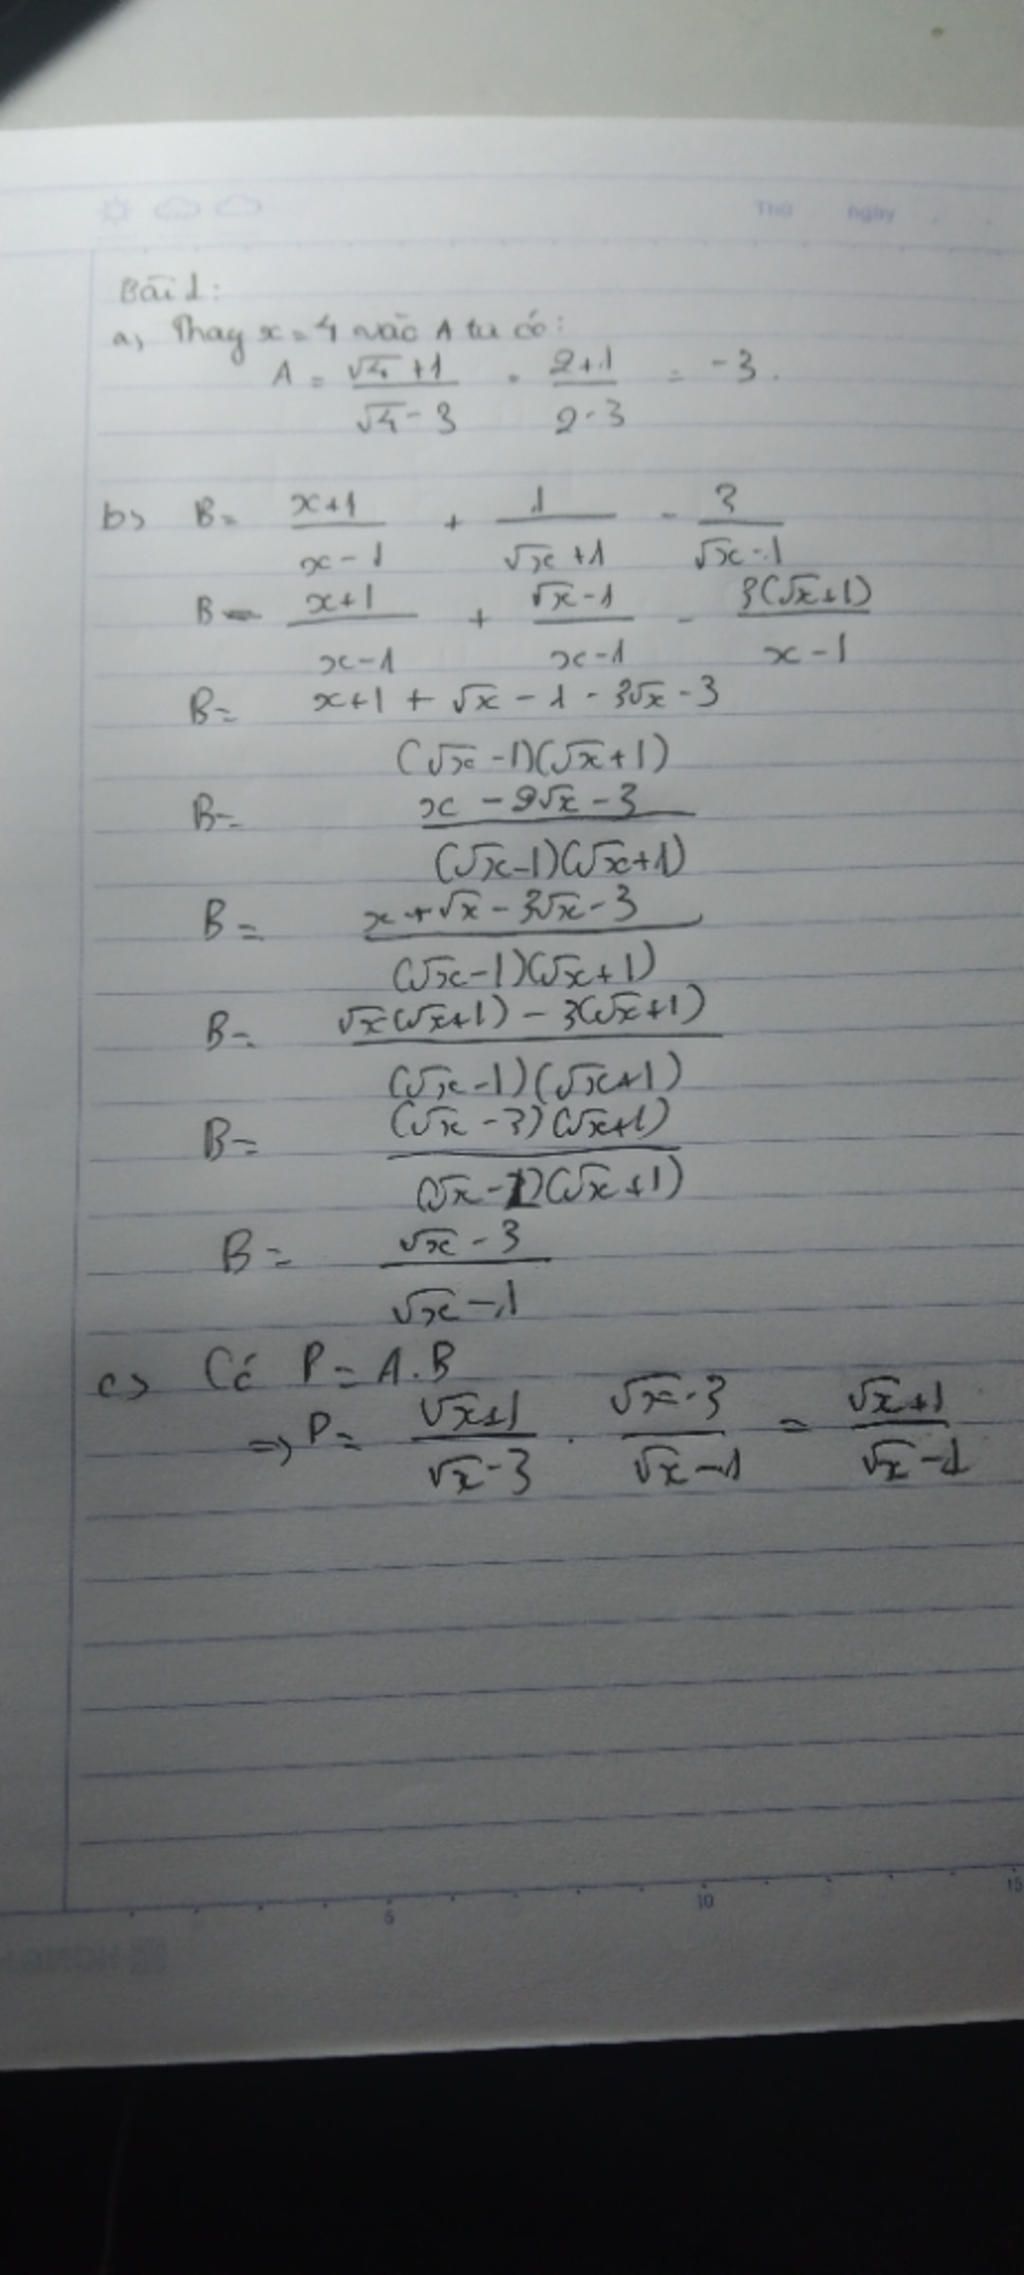 Thứ ngày
Bài 1:
a, Thay x = 4 vào A ta có:
A = (√4 + 1)/(√4 - 3) = (2+1)/(2-3) = -3.
b> B = (x+1)/(x-1) + 1/(√x+1) - 3/(√x-1)
B = (x+1)/(x-1) + (√x-1)/(x-1) - 3(√x+1)/(x-1)
B = x+1 + √x - 1 - 3√x - 3
(√x-1)(√x+1)
B = (x - 2√x - 3)/((√x-1)(√x+1))
B = (x + √x - 3√x - 3)/((√x-1)(√x+1))
B = (√x(√x+1) - 3(√x+1))/((√x-1)(√x+1))
B = ((√x-3)(√x+1))/((√x-1)(√x+1))
B = (√x-3)/(√x-1)
c> Có P = A.B
=> P = (√x+1)/(√x-3) . (√x-3)/(√x-1) = (√x+1)/(√x-1)
5 10 15